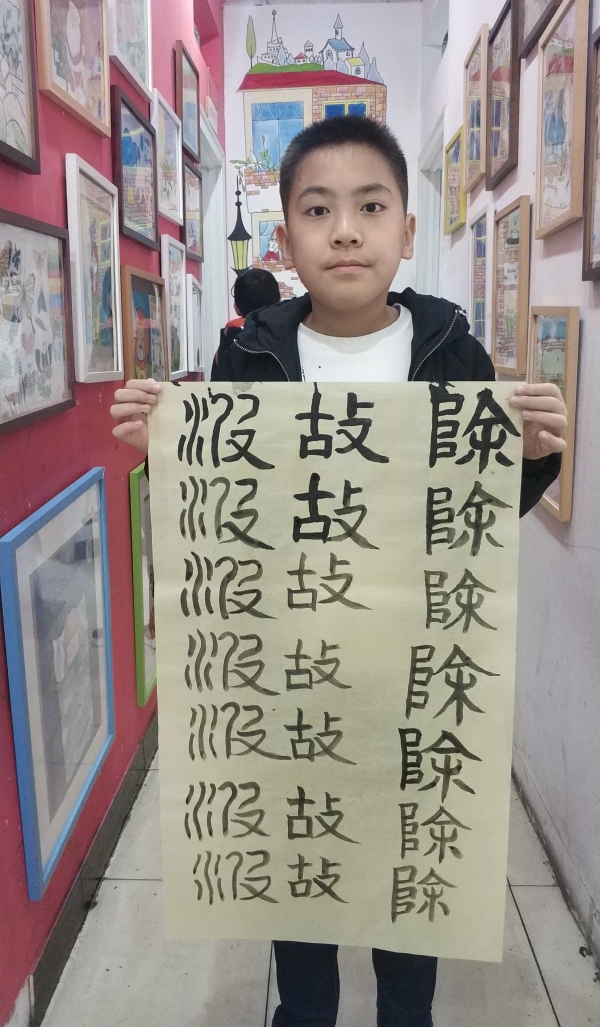 除除除除除除除
故故故故故故故
没没没没没没没